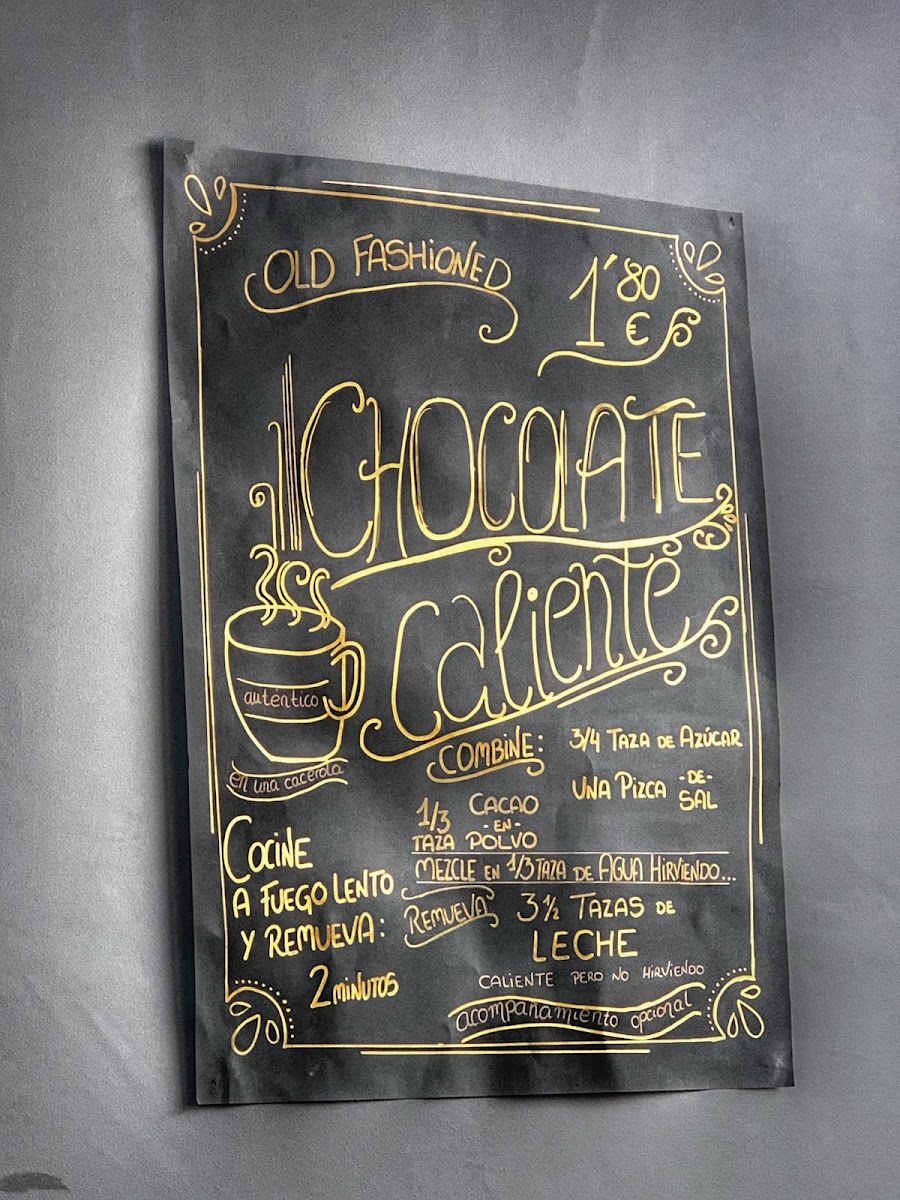 OLD FASHiONED
1´80
€
CHOCOLATE
Caliente
auténtico
en una cacerola
COMBiNE:
3/4 TAZA DE AZÚCAR
UNA PiZCA -DE- SAL
1/3 CACAO
-EN-
TAZA POLVO
MEZCLE EN 1/3 TAZA DE AGUA HiRViENDO...
COCiNE
A FUEGO LENTO
Y REMUEVA:
2 MiNUTOS
REMUEVA
3 ½ TAZAS DE
LECHE
CALiENTE PERO NO HiRViENDO
acompañamiento opcional